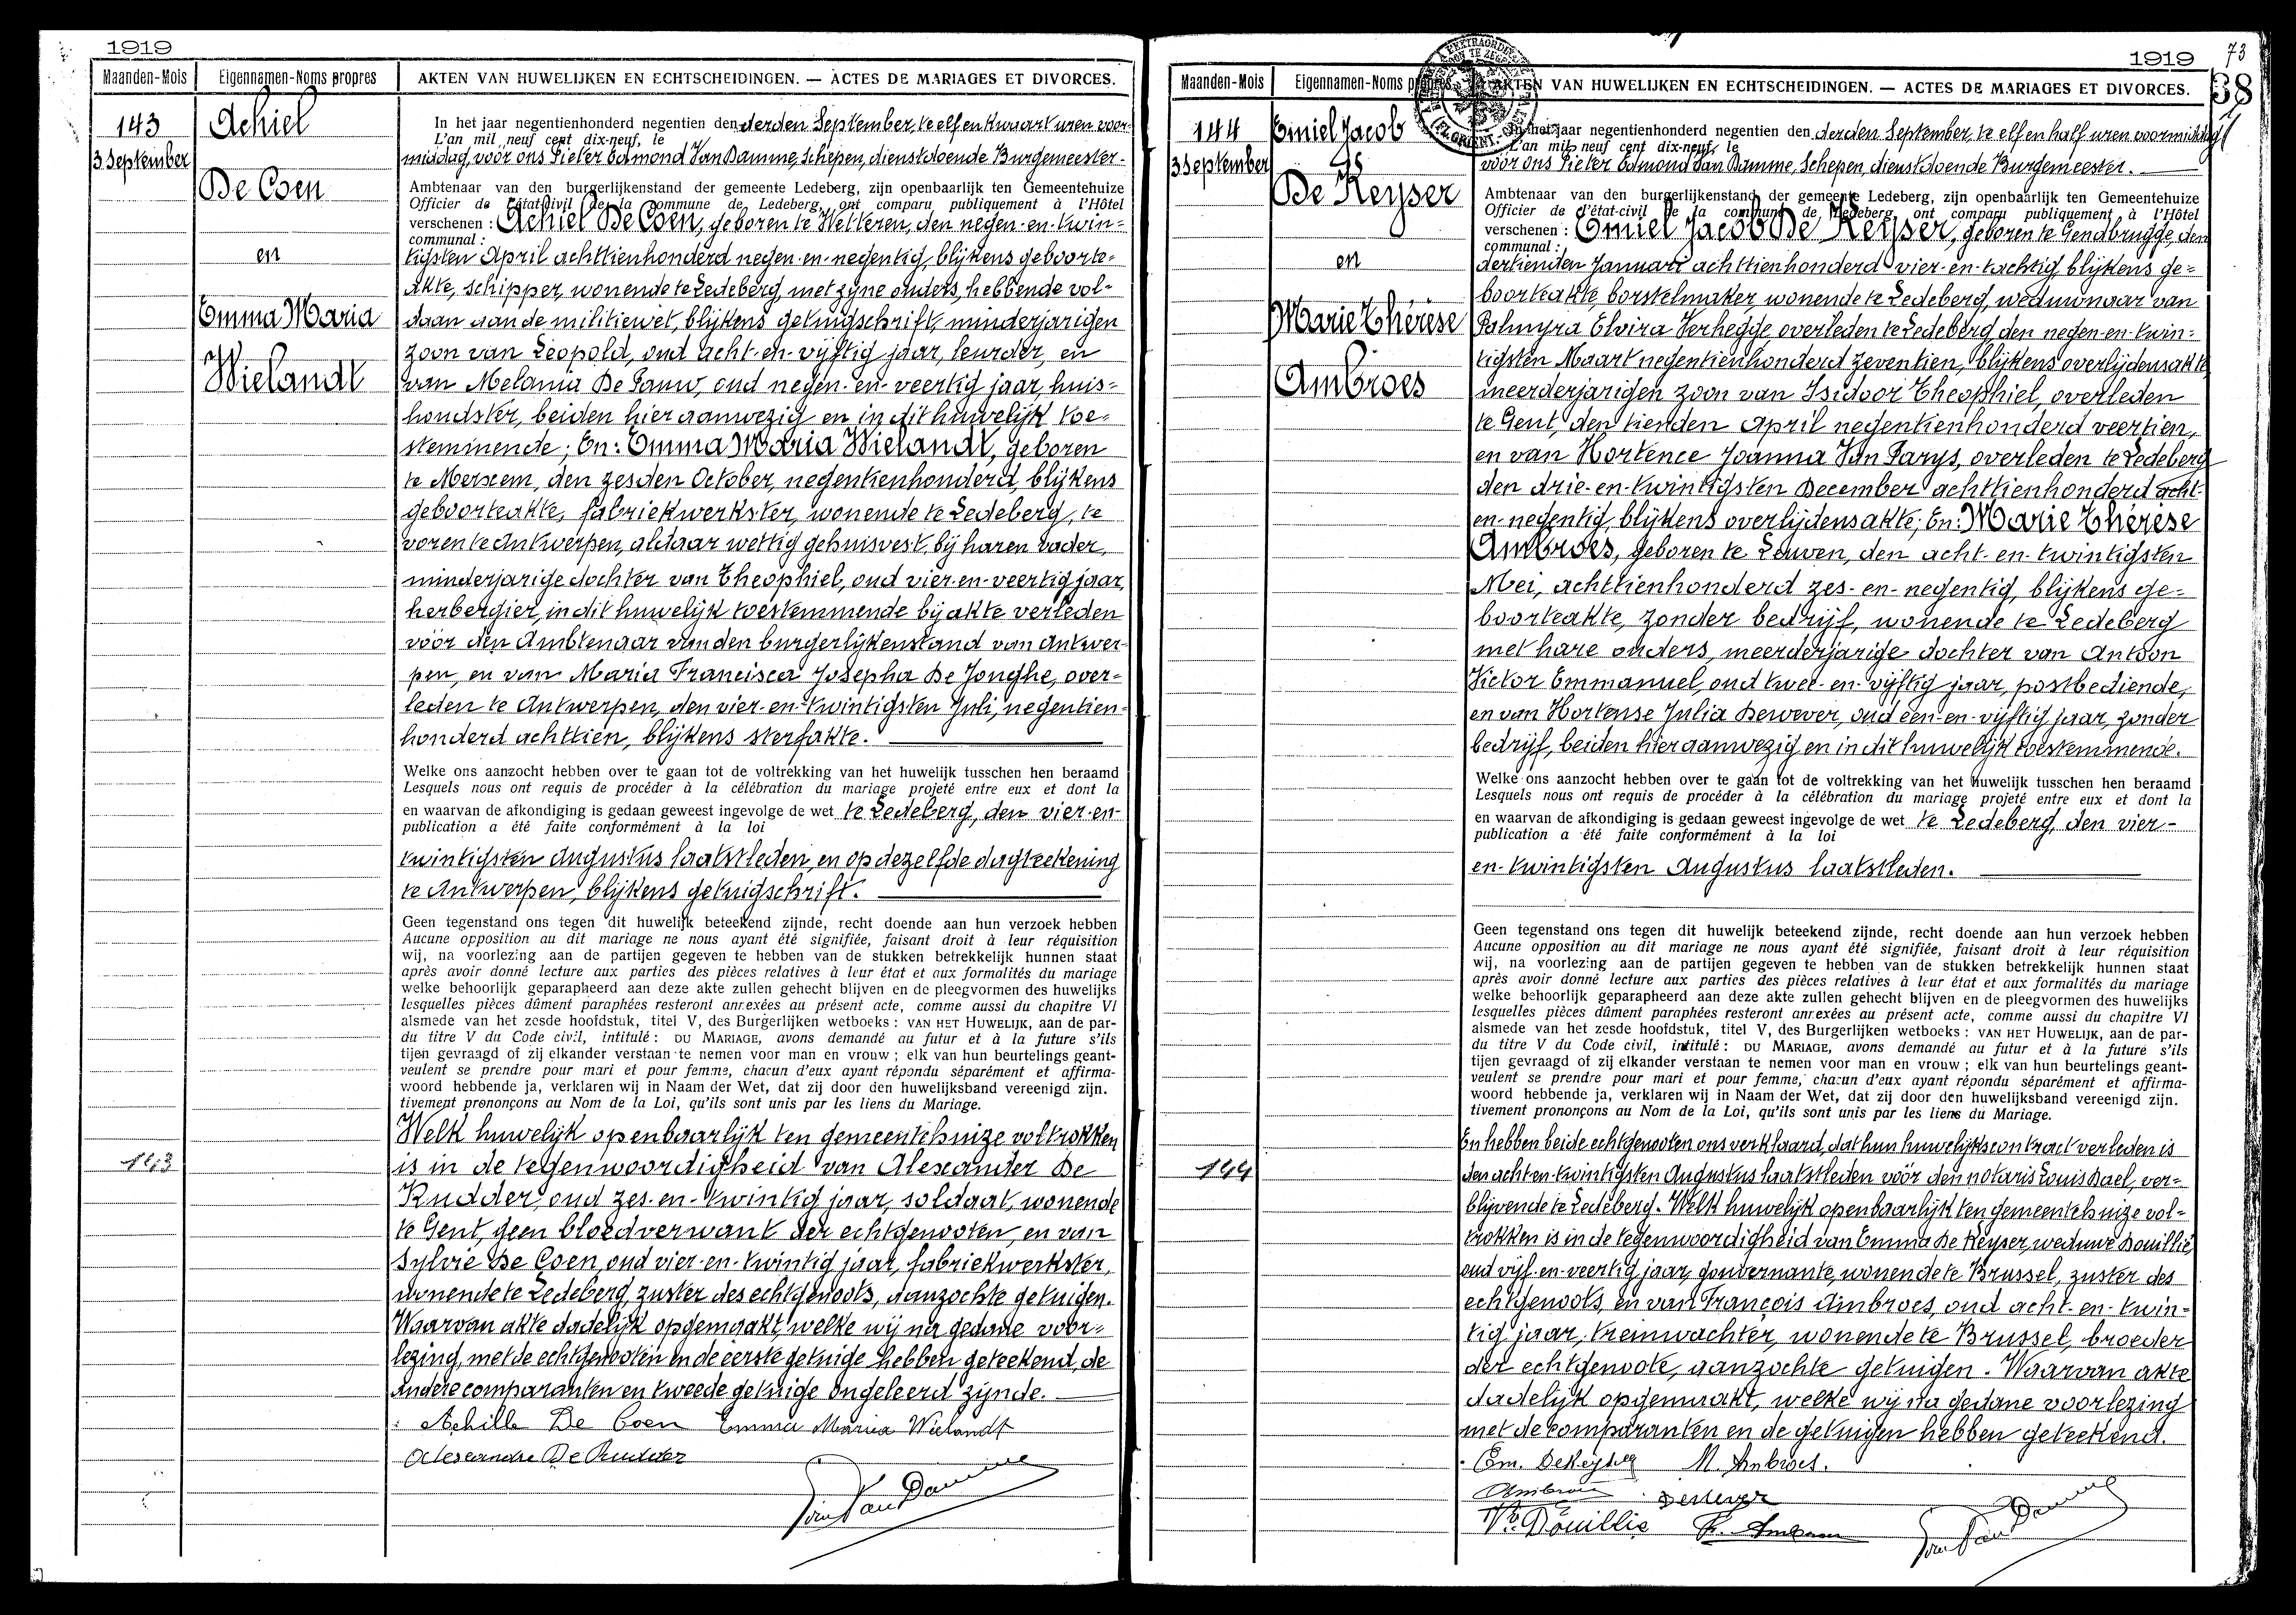 1919
Maanden-Mois Eigennamen-Noms propres AKTEN VAN HUWELIJKEN EN ECHTSCHEIDINGEN. — ACTES DE MARIAGES ET DIVORCES.
143
3 September
Achiel
De Coen
en
Emma Maria
Wielandt
In het jaar negentienhonderd negentien den derden September, te elf en kwaart uren voor-
L'an mil neuf cent dix-neuf, le
middag, voor ons Pieter Edmond Van Damme, Schepen, dienstdoende Burgemeester-
Ambtenaar van den burgerlijkenstand der gemeente Ledeberg, zijn openbaarlijk ten Gemeentehuize
Officier de l'état-civil de la commune de Ledeberg, ont comparu publiquement à l'Hôtel
verschenen : Achiel De Coen, geboren te Wetteren, den negen-en-twin-
communal :
tigsten April achttienhonderd negen-en-negentig, blijkens geboorte-
akte, schipper, wonende te Ledeberg, met zyne ouders, hebbende vol-
daan aan de militiewet, blijkens getuigschrift, minderjarigen
zoon van Leopold, oud acht-en-vijftig jaar, leurder, en
van Melania De Pauw, oud negen-en-veertig jaar, huis-
houdster, beiden hier aanwezig en in dit huwelijk toe-
stemmende; En: Emma Maria Wielandt, geboren
te Merxem, den zesden October, negentienhonderd, blijkens
geboorteakte, fabriekwerkster, wonende te Ledeberg, te
voren te Antwerpen, aldaar wettig gehuisvest, bij haren vader,
minderjarige dochter van Theophiel, oud vier-en-veertig jaar,
herbergier, in dit huwelijk toestemmende bij akte verleden
voor den Ambtenaar van den burgerlijkenstand van Antwer-
pen, en van Maria Francisca Josepha De Jonghe, over-
leden te Antwerpen, den vier-en-twintigsten Juli, negentien-
honderd achttien, blijkens sterfakte.
Welke ons aanzocht hebben over te gaan tot de voltrekking van het huwelijk tusschen hen beraamd
Lesquels nous ont requis de procéder à la célébration du mariage projeté entre eux et dont la
en waarvan de afkondiging is gedaan geweest ingevolge de wet te Ledeberg, den vier-en-
publication a été faite conformément à la loi
twintigsten Augustus laatstleden, en op dezelfde dagteekening
te Antwerpen, blijkens getuigschrift.
Geen tegenstand ons tegen dit huwelijk beteekend zijnde, recht doende aan hun verzoek hebben
Aucune opposition au dit mariage ne nous ayant été signifiée, faisant droit à leur réquisition
wij, na voorlezing aan de partijen gegeven te hebben van de stukken betrekkelijk hunnen staat
après avoir donné lecture aux parties des pièces relatives à leur état et aux formalités du mariage
welke behoorlijk geparapheerd aan deze akte zullen gehecht blijven en de pleegvormen des huwelijks
lesquelles pièces dûment paraphées resteront annexées au présent acte, comme aussi du chapitre VI
alsmede van het zesde hoofdstuk, titel V, des Burgerlijken wetboeks : VAN HET HUWELIJK, aan de par-
du titre V du Code civil, intitulé : DU MARIAGE, avons demandé au futur et à la future s'ils
tijen gevraagd of zij elkander verstaan te nemen voor man en vrouw ; elk van hun beurtelings geant-
veulent se prendre pour mari et pour femme, chacun d'eux ayant répondu séparément et affirma-
woord hebbende ja, verklaren wij in Naam der Wet, dat zij door den huwelijksband vereenigd zijn.
tivement prononçons au Nom de la Loi, qu'ils sont unis par les liens du Mariage.
Welk huwelijk openbaarlijk ten gemeentehuize voltrokken
143
is in de tegenwoordigheid van Alexander De
Rudder, oud zes-en-twintig jaar, soldaat, wonende
te Gent, geen bloedverwant der echtgenooten, en van
Sylvie De Coen, oud vier-en-twintig jaar, fabriekwerkster,
wonende te Ledeberg, zuster des echtgenoots, aanzochte getuigen.
Waarvan akte dadelijk opgemaakt, welke wij na gedane voor-
lezing, met de echtgenooten en de eerste getuige hebben geteekend, de
andere comparanten en tweede getuige ongeleerd zijnde.
Achille De Coen Emma Maria Wielandt
Alexandre De Rudder
Van Damme
1919
73
38
Maanden-Mois Eigennamen-Noms AKTEN VAN HUWELIJKEN EN ECHTSCHEIDINGEN. — ACTES DE MARIAGES ET DIVORCES.
144
3 September
Emiel Jacob
De Keyser
en
Marie Thérèse
Ambroes
In het jaar negentienhonderd negentien den derden September, te elf en half uren voormiddag,
L'an mil neuf cent dix-neuf, le
voor ons Pieter Edmond Van Damme, Schepen, dienstdoende Burgemeester.
Ambtenaar van den burgerlijkenstand der gemeente Ledeberg, zijn openbaarlijk ten Gemeentehuize
Officier de l'état-civil de la commune de Ledeberg, ont comparu publiquement à l'Hôtel
verschenen : Emiel Jacob De Keyser, geboren te Gendbrugge, den
communal :
dertienden Januari achttienhonderd vier-en-tachtig, blijkens ge-
boorteakte, borstelmaker, wonende te Ledeberg, weduwnaar van
Palmyra Elvira Verhegge, overleden te Ledeberg, den negen-en-twin-
tigsten Maart negentienhonderd zeventien, blijkens overlijdensakte,
meerderjarigen zoon van Isidoor Theophiel, overleden
te Gent, den tienden April negentienhonderd veertien,
en van Hortence Joanna Van Parys, overleden te Ledeberg
den drie-en-twintigsten December achttienhonderd acht-
en-negentig, blijkens overlijdensakte; En: Marie Thérèse
Ambroes, geboren te Leuven, den acht-en-twintigsten
Mei, achttienhonderd zes-en-negentig, blijkens ge-
boorteakte, zonder bedrijf, wonende te Ledeberg
met hare ouders, meerderjarige dochter van Antoon
Victor Emmanuel, oud twee-en-vijftig jaar, postbediende,
en van Hortense Julia Dewever, oud een-en-vijftig jaar, zonder
bedrijf, beiden hier aanwezig en in dit huwelijk toestemmende.
Welke ons aanzocht hebben over te gaan tot de voltrekking van het huwelijk tusschen hen beraamd
Lesquels nous ont requis de procéder à la célébration du mariage projeté entre eux et dont la
en waarvan de afkondiging is gedaan geweest ingevolge de wet te Ledeberg, den vier-
publication a été faite conformément à la loi
en-twintigsten Augustus laatstleden.
Geen tegenstand ons tegen dit huwelijk beteekend zijnde, recht doende aan hun verzoek hebben
Aucune opposition au dit mariage ne nous ayant été signifiée, faisant droit à leur réquisition
wij, na voorlezing aan de partijen gegeven te hebben van de stukken betrekkelijk hunnen staat
après avoir donné lecture aux parties des pièces relatives à leur état et aux formalités du mariage
welke behoorlijk geparapheerd aan deze akte zullen gehecht blijven en de pleegvormen des huwelijks
lesquelles pièces dûment paraphées resteront annexées au présent acte, comme aussi du chapitre VI
alsmede van het zesde hoofdstuk, titel V, des Burgerlijken wetboeks : VAN HET HUWELIJK, aan de par-
du titre V du Code civil, intitulé : DU MARIAGE, avons demandé au futur et à la future s'ils
tijen gevraagd of zij elkander verstaan te nemen voor man en vrouw ; elk van hun beurtelings geant-
veulent se prendre pour mari et pour femme, chacun d'eux ayant répondu séparément et affirma-
woord hebbende ja, verklaren wij in Naam der Wet, dat zij door den huwelijksband vereenigd zijn.
tivement prononçons au Nom de la Loi, qu'ils sont unis par les liens du Mariage.
En hebben beide echtgenooten ons verklaard, dat hun huwelijkscontract verleden is
144
den acht-en-twintigsten Augustus laatstleden vóór den notaris Louis Dael, ver-
blijvende te Ledeberg. Welk huwelijk openbaarlijk ten gemeentehuize vol-
trokken is in de tegenwoordigheid van Emma De Keyser, weduwe Douillie,
oud vijf-en-veertig jaar, gouvernante, wonende te Brussel, zuster des
echtgenoots, en van François Ambroes, oud acht-en-twin-
tig jaar, treinwachter, wonende te Brussel, broeder
der echtgenoote, aanzochte getuigen. Waarvan akte
dadelijk opgemaakt, welke wij na gedane voorlezing
met de comparanten en de getuigen hebben geteekend.
Em. DeKeyser M. Ambroes.
Ambroes Dewever
Ve Douillie F. Ambroes
Van Damme